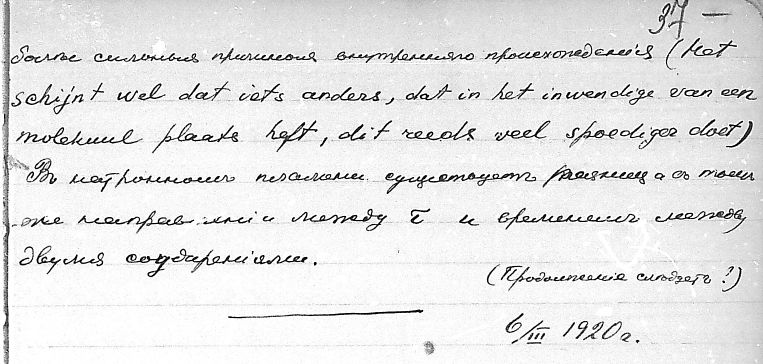 37 —
болѣе сильныя причиныя внутренняго происхожденія (Het
schijnt wel dat iets anders, dat in het inwendige van een
molekuul plaats heft, dit reeds veel spoediger doet)
Въ натронномъ пламени существуетъ разница въ томъ
же направленіи между τ и временемъ между
двумя соудареніями.
(Продолженіе слѣдуетъ?)
6/III 1920 г.